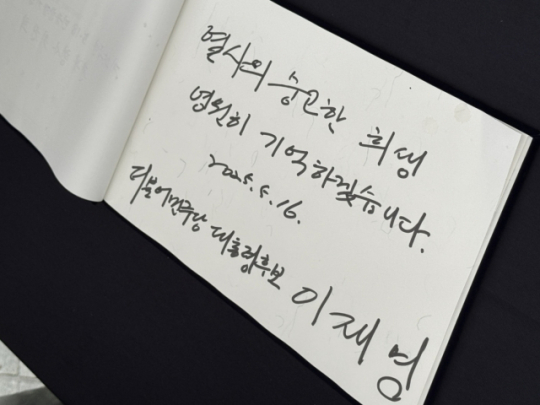 열사의 숭고한 희생
영원히 기억하겠습니다.
2025. 5. 16.
더불어민주당 대통령후보 이재명